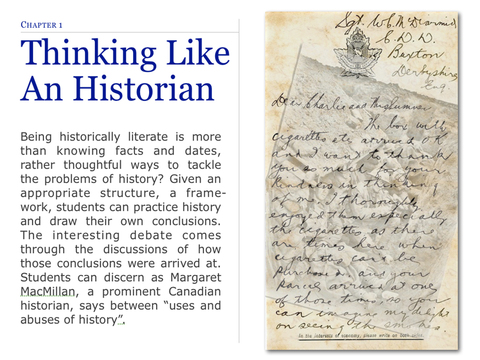 CHAPTER 1
Thinking Like
An Historian
Being historically literate is more
than knowing facts and dates,
rather thoughtful ways to tackle
the problems of history? Given an
appropriate structure, a frame-
work, students can practice history
and draw their own conclusions.
The interesting debate comes
through the discussions of how
those conclusions were arrived at.
Students can discern as Margaret
MacMillan, a prominent Canadian
historian, says between “uses and
abuses of history”.
Sgt. W.C. McDearmid
C.D.D.
Buxton
Derbyshire
Eng.
Dear Charlie and
The box with
cigarettes etc arrived OK
and I want to thank
you so much for your
kindness in thinking
of me. I thoroughly
enjoyed them especially
the cigarettes as there
are times here when
cigarettes can't be
purchased and your
parcel arrived at one
of those times so you
can imagine my delight
on seeing the smokes.
In the interests of economy, please write on